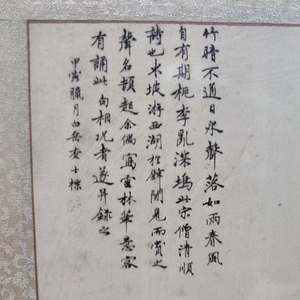 竹暗不通日泉聲落如雨春風
自有期桃李亂深塢此宋僧清順
詩也東坡游西湖於壁間見而賞之
聲名頓起余偶寫雲林筆意客
有誦此句相況者遂并錄之
甲寅臘月白岳查士標